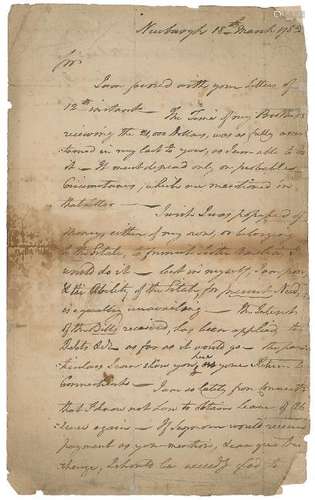 Newburgh 18th March 178
Sir
I am favored with your Letters of
12th instant — The Time of my Brother
receiving the 21,000 Dollars, was as fully
tioned in my last to you, as I am able to
it — It must depend only on probable
Circumstances, which are mentioned in
that letter — I wish I was possessed of
money either of my own, or belonging
to the Estate, to
would do it — but in myself, I am poor
& the Ability of the Estate, for present Need
is equally unavailing — The Interest
of the Bills received, has been applied to
Debts &c as far as it would go — the par
ticulars I can show you here on your Return to
Connecticut — I am so lately from Connecticut
that I know not how to obtain Leave of Ab
sence again — If Seymour would receive
payment as you mention, &
change, I should be exceedg glad to